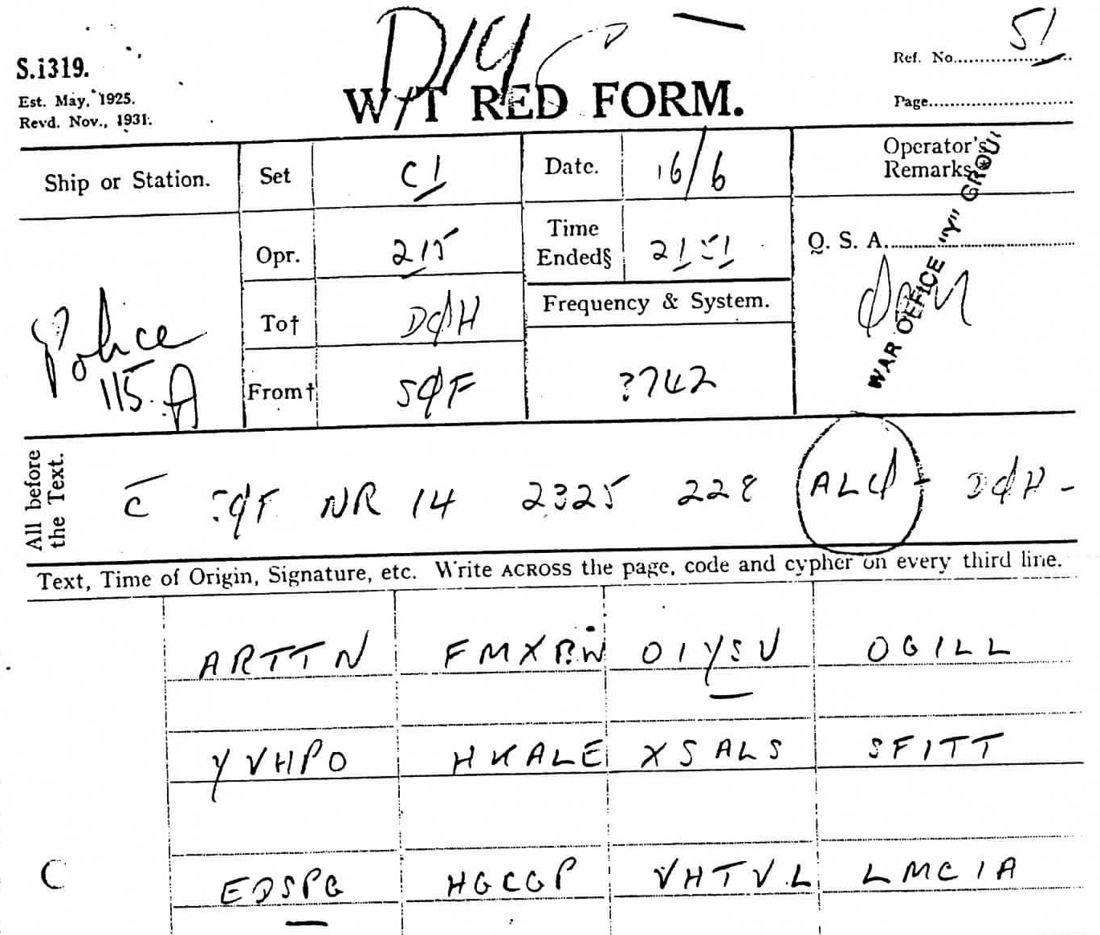 51
S.1319. Ref. No.
Est. May, 1925. W/T RED FORM. Page
Revd. Nov., 1931.
Ship or Station. Set C1 Date. 16/6 Operator's Remarks
Opr. 215 Time Ended§ Q. S. A.
WAR OFFICE "Y" GROU
To† DØH Frequency & System.
Police
115 A
From† SØF ?742
All before the Text. C ØF NR 14 2325 228 ALØ - DØH -
Text, Time of Origin, Signature, etc. Write ACROSS the page, code and cypher on every third line.
ARTTN FMXRW OIYSV OGILL
YVHPO HKALE XSALS SFITT
C EDSPG HGCGP VHTVL LMCIA